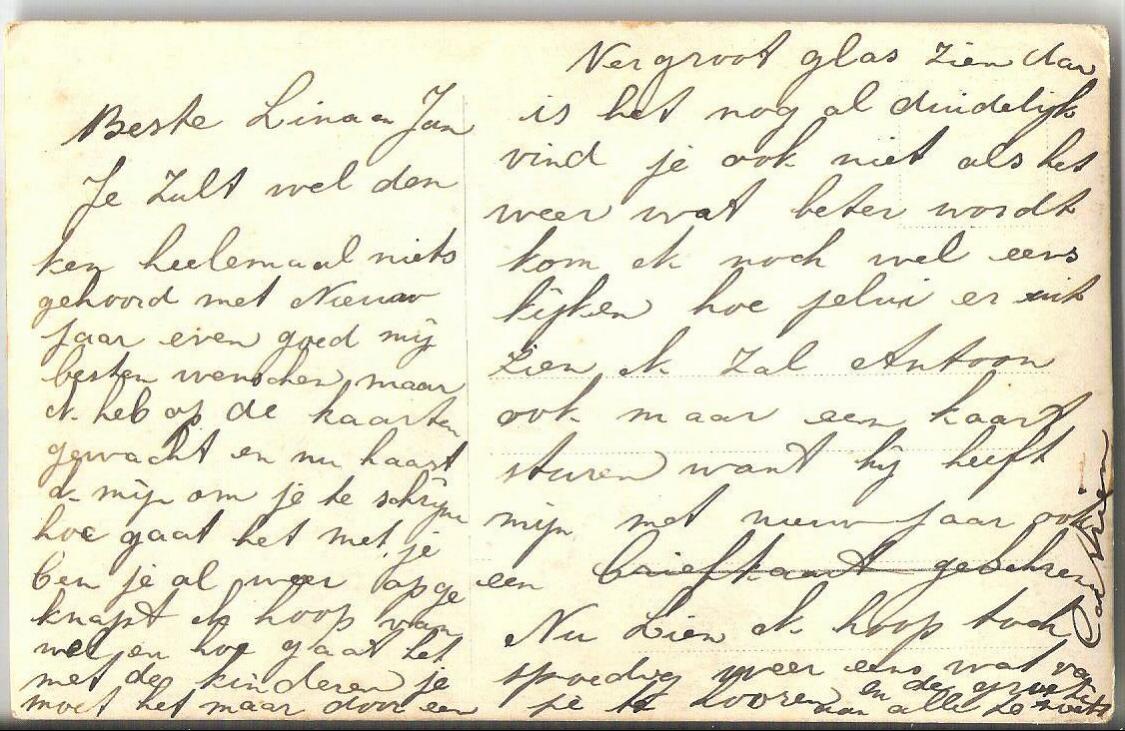 Beste Lina en Jan
Je zult wel den
ken heelemaal niets
gehoord met Nieuw
jaar even goed mij
besten wenschen maar
ik heb op de kaarten
gewacht en nu haast
ik mijn om je te schrijven
hoe gaat het met je
ben je al weer opge
knapt ik hoop van
wel en hoe gaat het
met de kinderen je
moet het maar door een
Vergroot glas zien dan
is het nog al duidelijk
vind je ook niet als het
weer wat beter wordt
kom ik noch wel eens
kijken hoe jelui er uit
zien ik zal Antoon
ook maar een kaart
sturen want hij heeft
mijn met nieuw jaar ook
een briefkaart geschreven
Nu Lien ik hoop toch
spoedig weer eens wat van
je te hooren en de groeten
aan alle